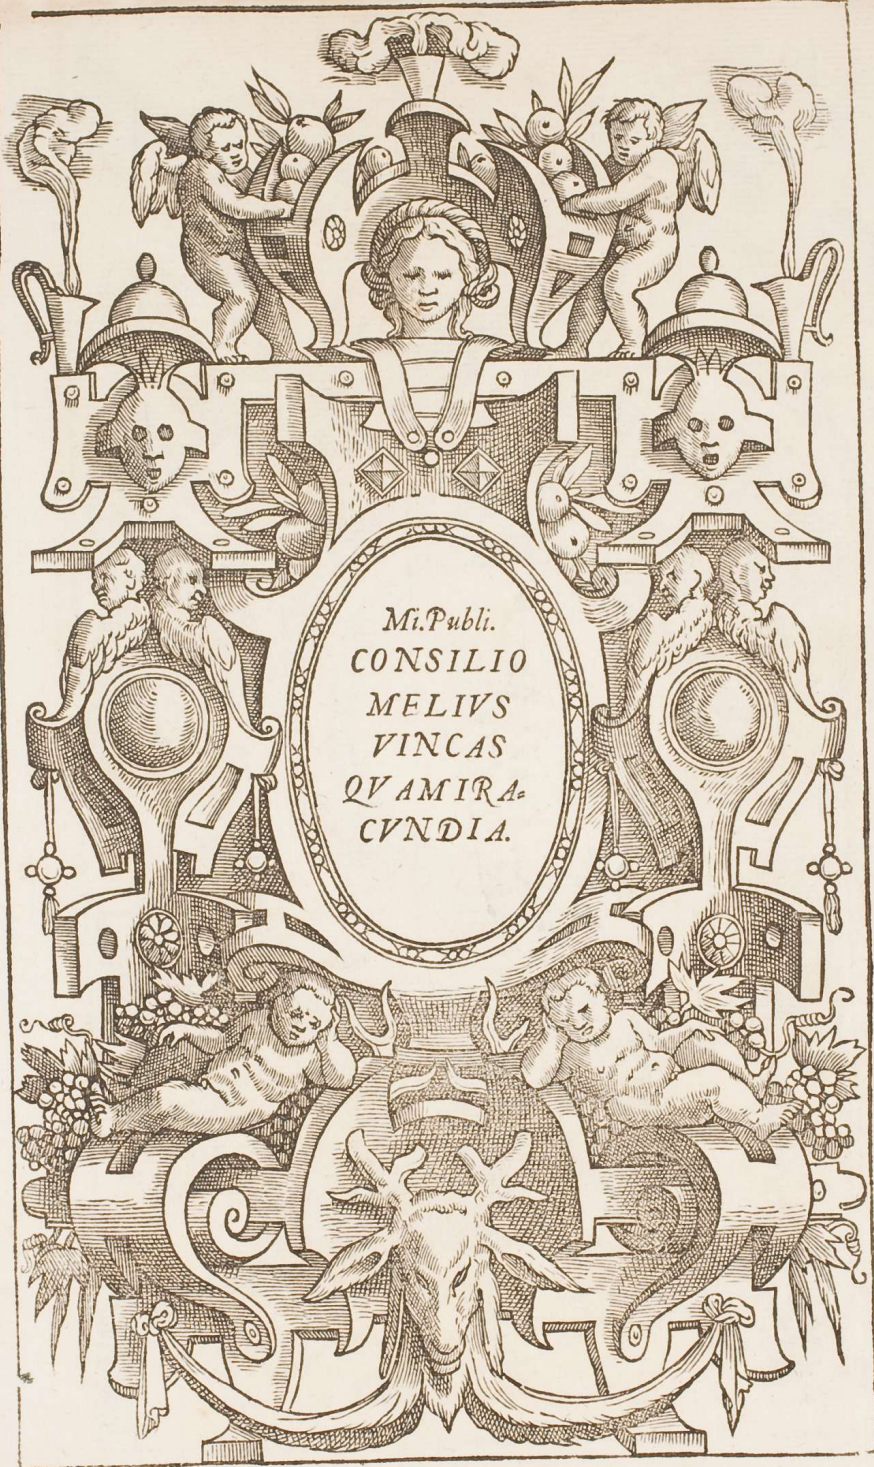 Mi.Publi.
CONSILIO
MELIVS
VINCAS
QVAMIRA-
CVNDIA.